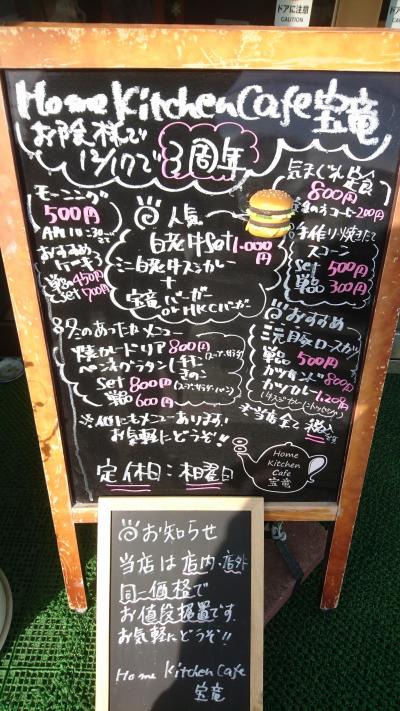 ドアに注意
CAUTION
ドアに注意
CAUTION
Home Kitchen Cafe 宝竜
お陰様で
12/17で3周年
モーニング
500円
AM10:30まで
おすすめ
ケーキ
単品450円
Set 700円
人気
白老牛Set 1,000円
ミニ白老牛スジカレー
+
宝竜バーガー
or HKCバーガー
気まぐれ日替
800円
コーヒー200円
手作り焼きたて
スコーン
Set 500円
単品 300円
あったかメニュー
焼カレードリア 800円
ペンネグラタン
きのこ
Set 800円
単品 600円
※他にもメニューあります!
お気軽にどうぞ!!
おすすめ
三元豚ロースカツ
単品 500円
800円
カツカレー 1,200円
※当店全て税込です
定休日:木曜日
Home
Kitchen
Cafe
宝竜
お知らせ
当店は店内・店外
同一価格で
お値段据置です。
お気軽にどうぞ!!
Home Kitchen Cafe
宝竜